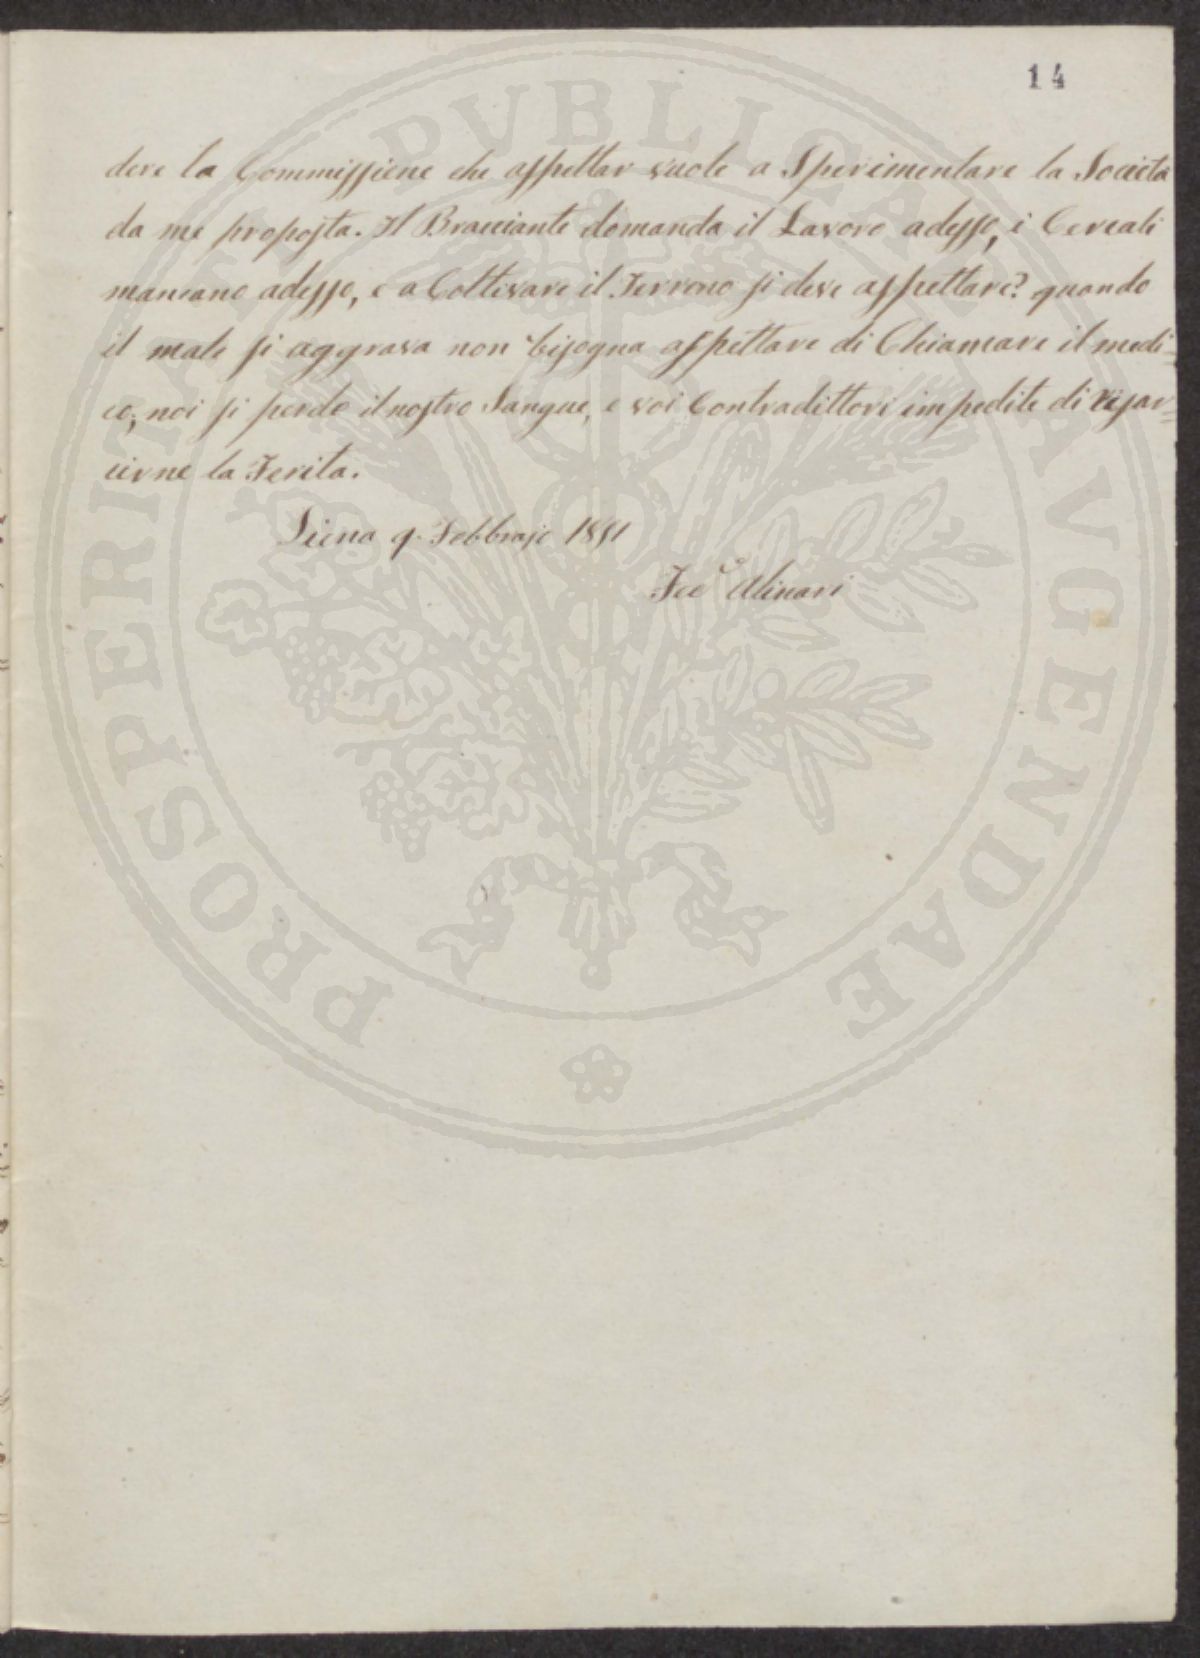 14
dere la Commissione che aspettar vuole a Sperimentare la Società
da me proposta. Il Bracciante domanda il Lavoro adesso, i Cereali
mancano adesso, e a Coltivare il Terreno si deve aspettare? quando
il male si aggrava non bisogna aspettare di Chiamare il medi=
co; noi si perde il nostro Sangue, e voi Contradittori impedite di risar=
cirne la Ferita.
Siena 9. Febbrajo 1851
Alinari
PROSPERITATI PVBLICAE AVGENDAE